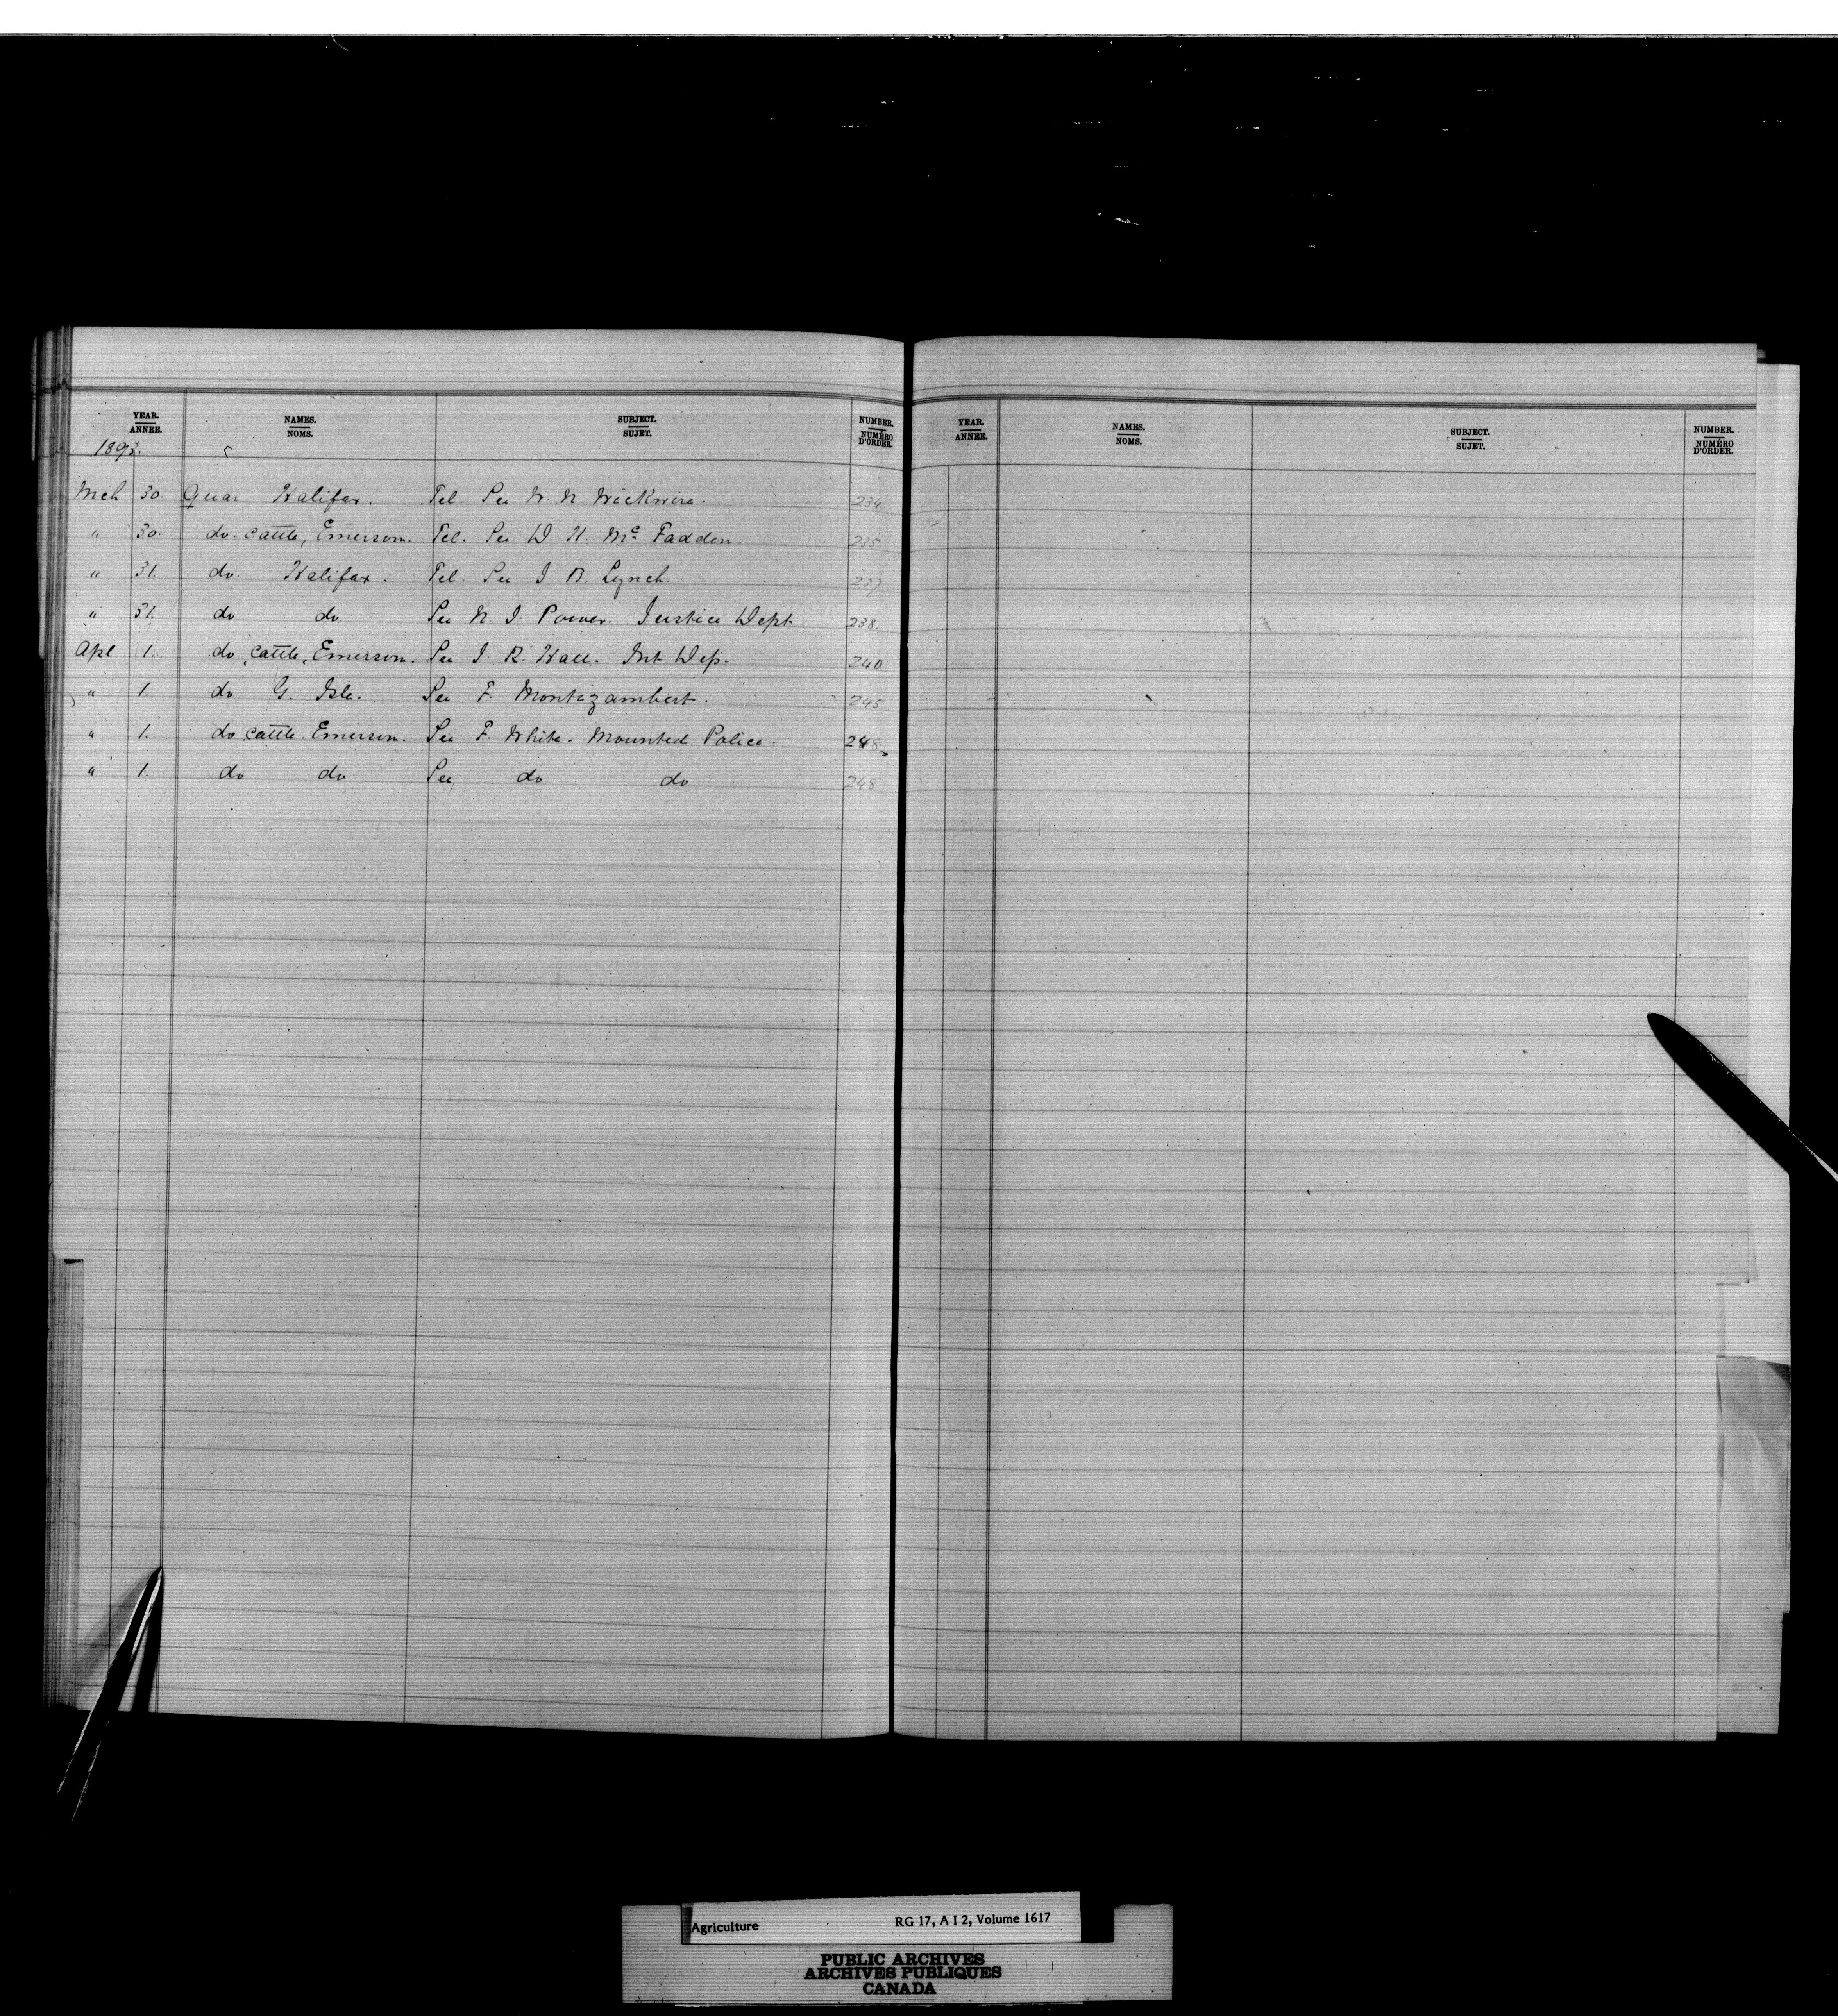 YEAR. NAMES. SUBJECT. NUMBER.
ANNEE. NOMS. SUJET. NUMÉRO D'ORDER.
1893.
Mch 30. Quar Halifax. Tel. See W. N. Wickwire. 234
" 30. do. cattle, Emerson. Tel. See D H. Mc Fadden. 235
" 31. do. Halifax. Tel. See J B. Lynch. 237
" 31. do do See N. J. Power. Justice Dept 238.
Apl 1. do cattle, Emerson. See J. R. Hall. Int Dep. 240
" 1. do G. Isle. See F. Montizambert. 245
" 1. do cattle. Emerson. See F. White. Mounted Police. 248.
" 1. do do See do do 248
YEAR. NAMES. SUBJECT. NUMBER.
ANNEE. NOMS. SUJET. NUMÉRO D'ORDER.
Agriculture RG 17, A I 2, Volume 1617
PUBLIC ARCHIVES
ARCHIVES PUBLIQUES
CANADA